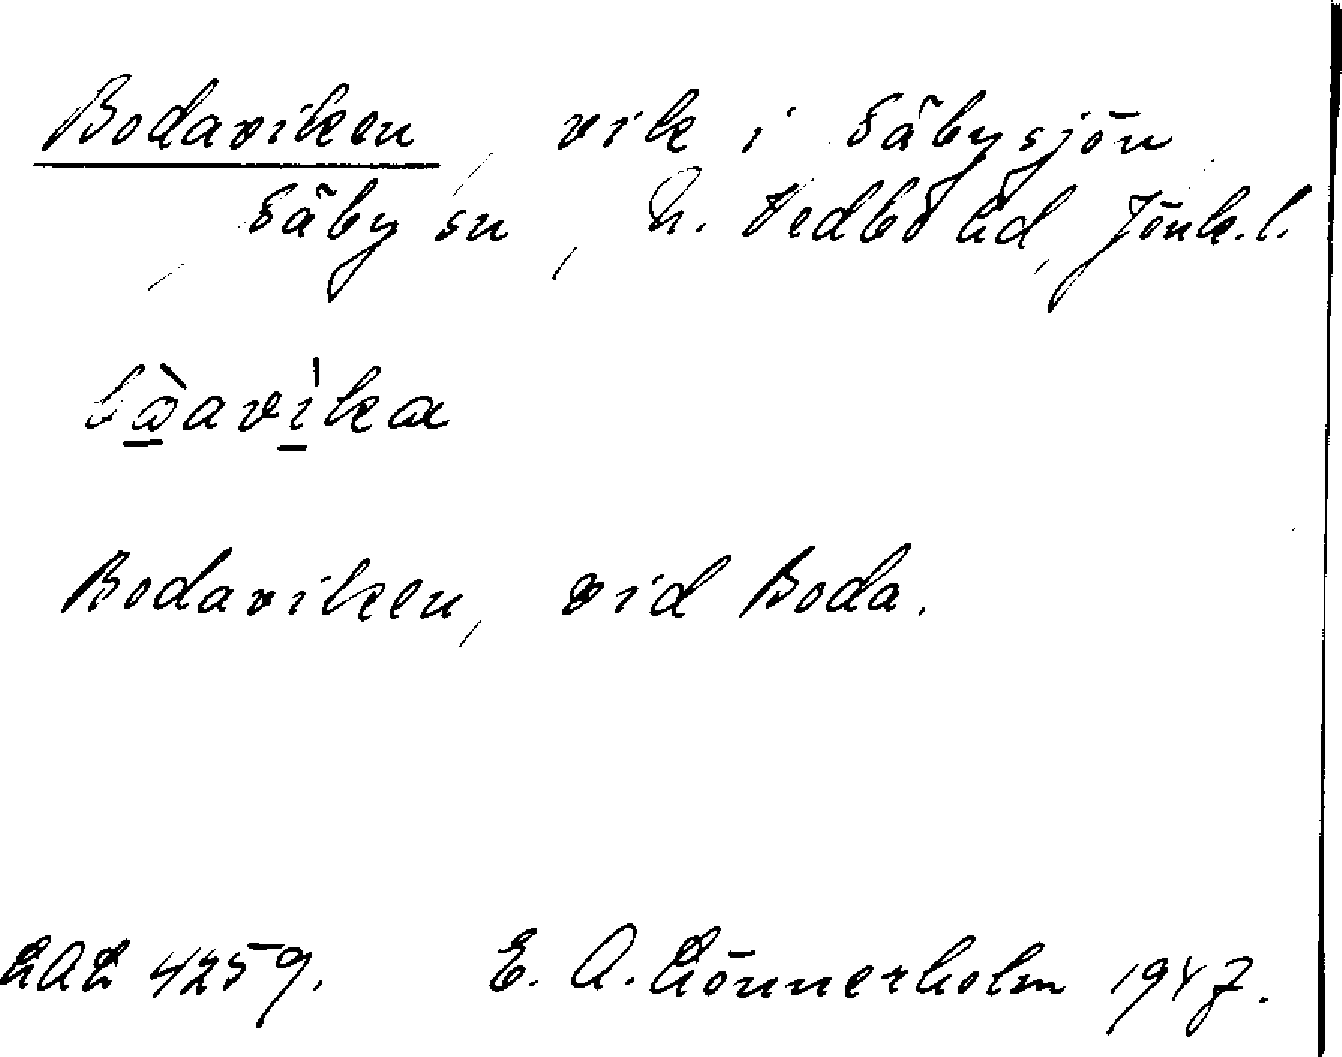 Bodaviken, vik i Säbysjön,
Säby sn, N. Vedbo hd, Jönk. l.
Bodaviken, vid Boda.
LAL 4259. E. A. Lönnerholm 1947.